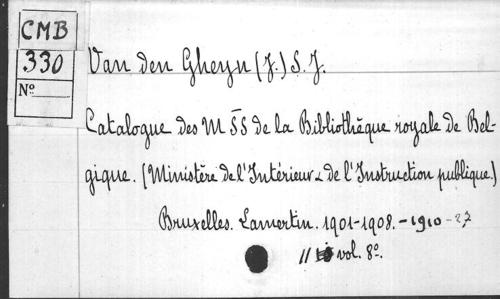 CMB
330
Nº
Van den Gheyn (J.) S. J.
Catalogue des MSS de la Bibliothèque royale de Bel-
gique. (Ministère de l'Intérieur & de l'Instruction publique.)
Bruxelles. Lamertin. 1901-1908. -1910-27
11 vol. 8º.